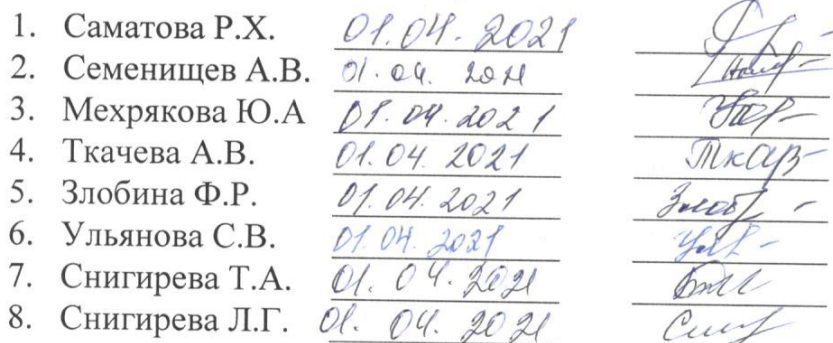 1. Саматова Р.Х. 01.04.2021
2. Семенищев А.В. 01.04.2021
3. Мехрякова Ю.А 01.04.2021
4. Ткачева А.В. 01.04.2021 ТкаАВ
5. Злобина Ф.Р. 01.04.2021 Злоб
6. Ульянова С.В. 01.04.2021
7. Снигирева Т.А. 01.04.2021
8. Снигирева Л.Г. 01.04.2021